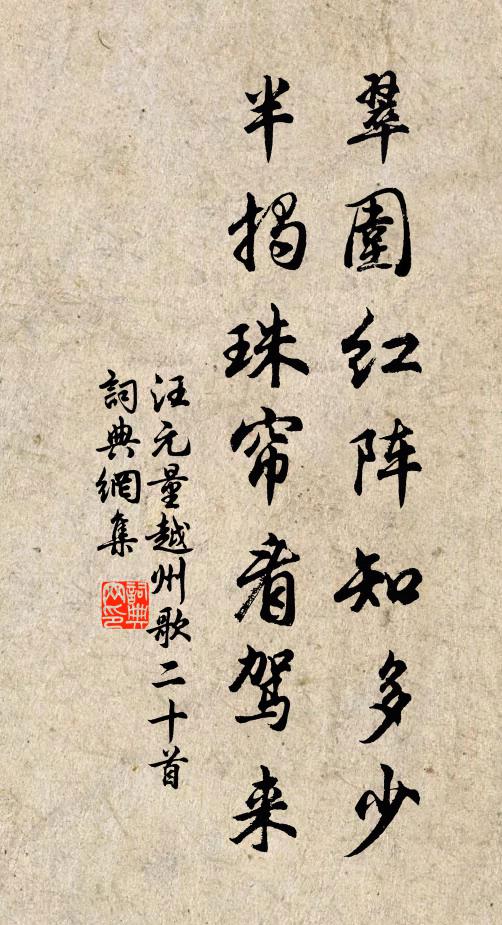 翠圍红阵知多少
半揭珠帘看驾来
汪元量越州歌二十首
詞典網集
詞典网印